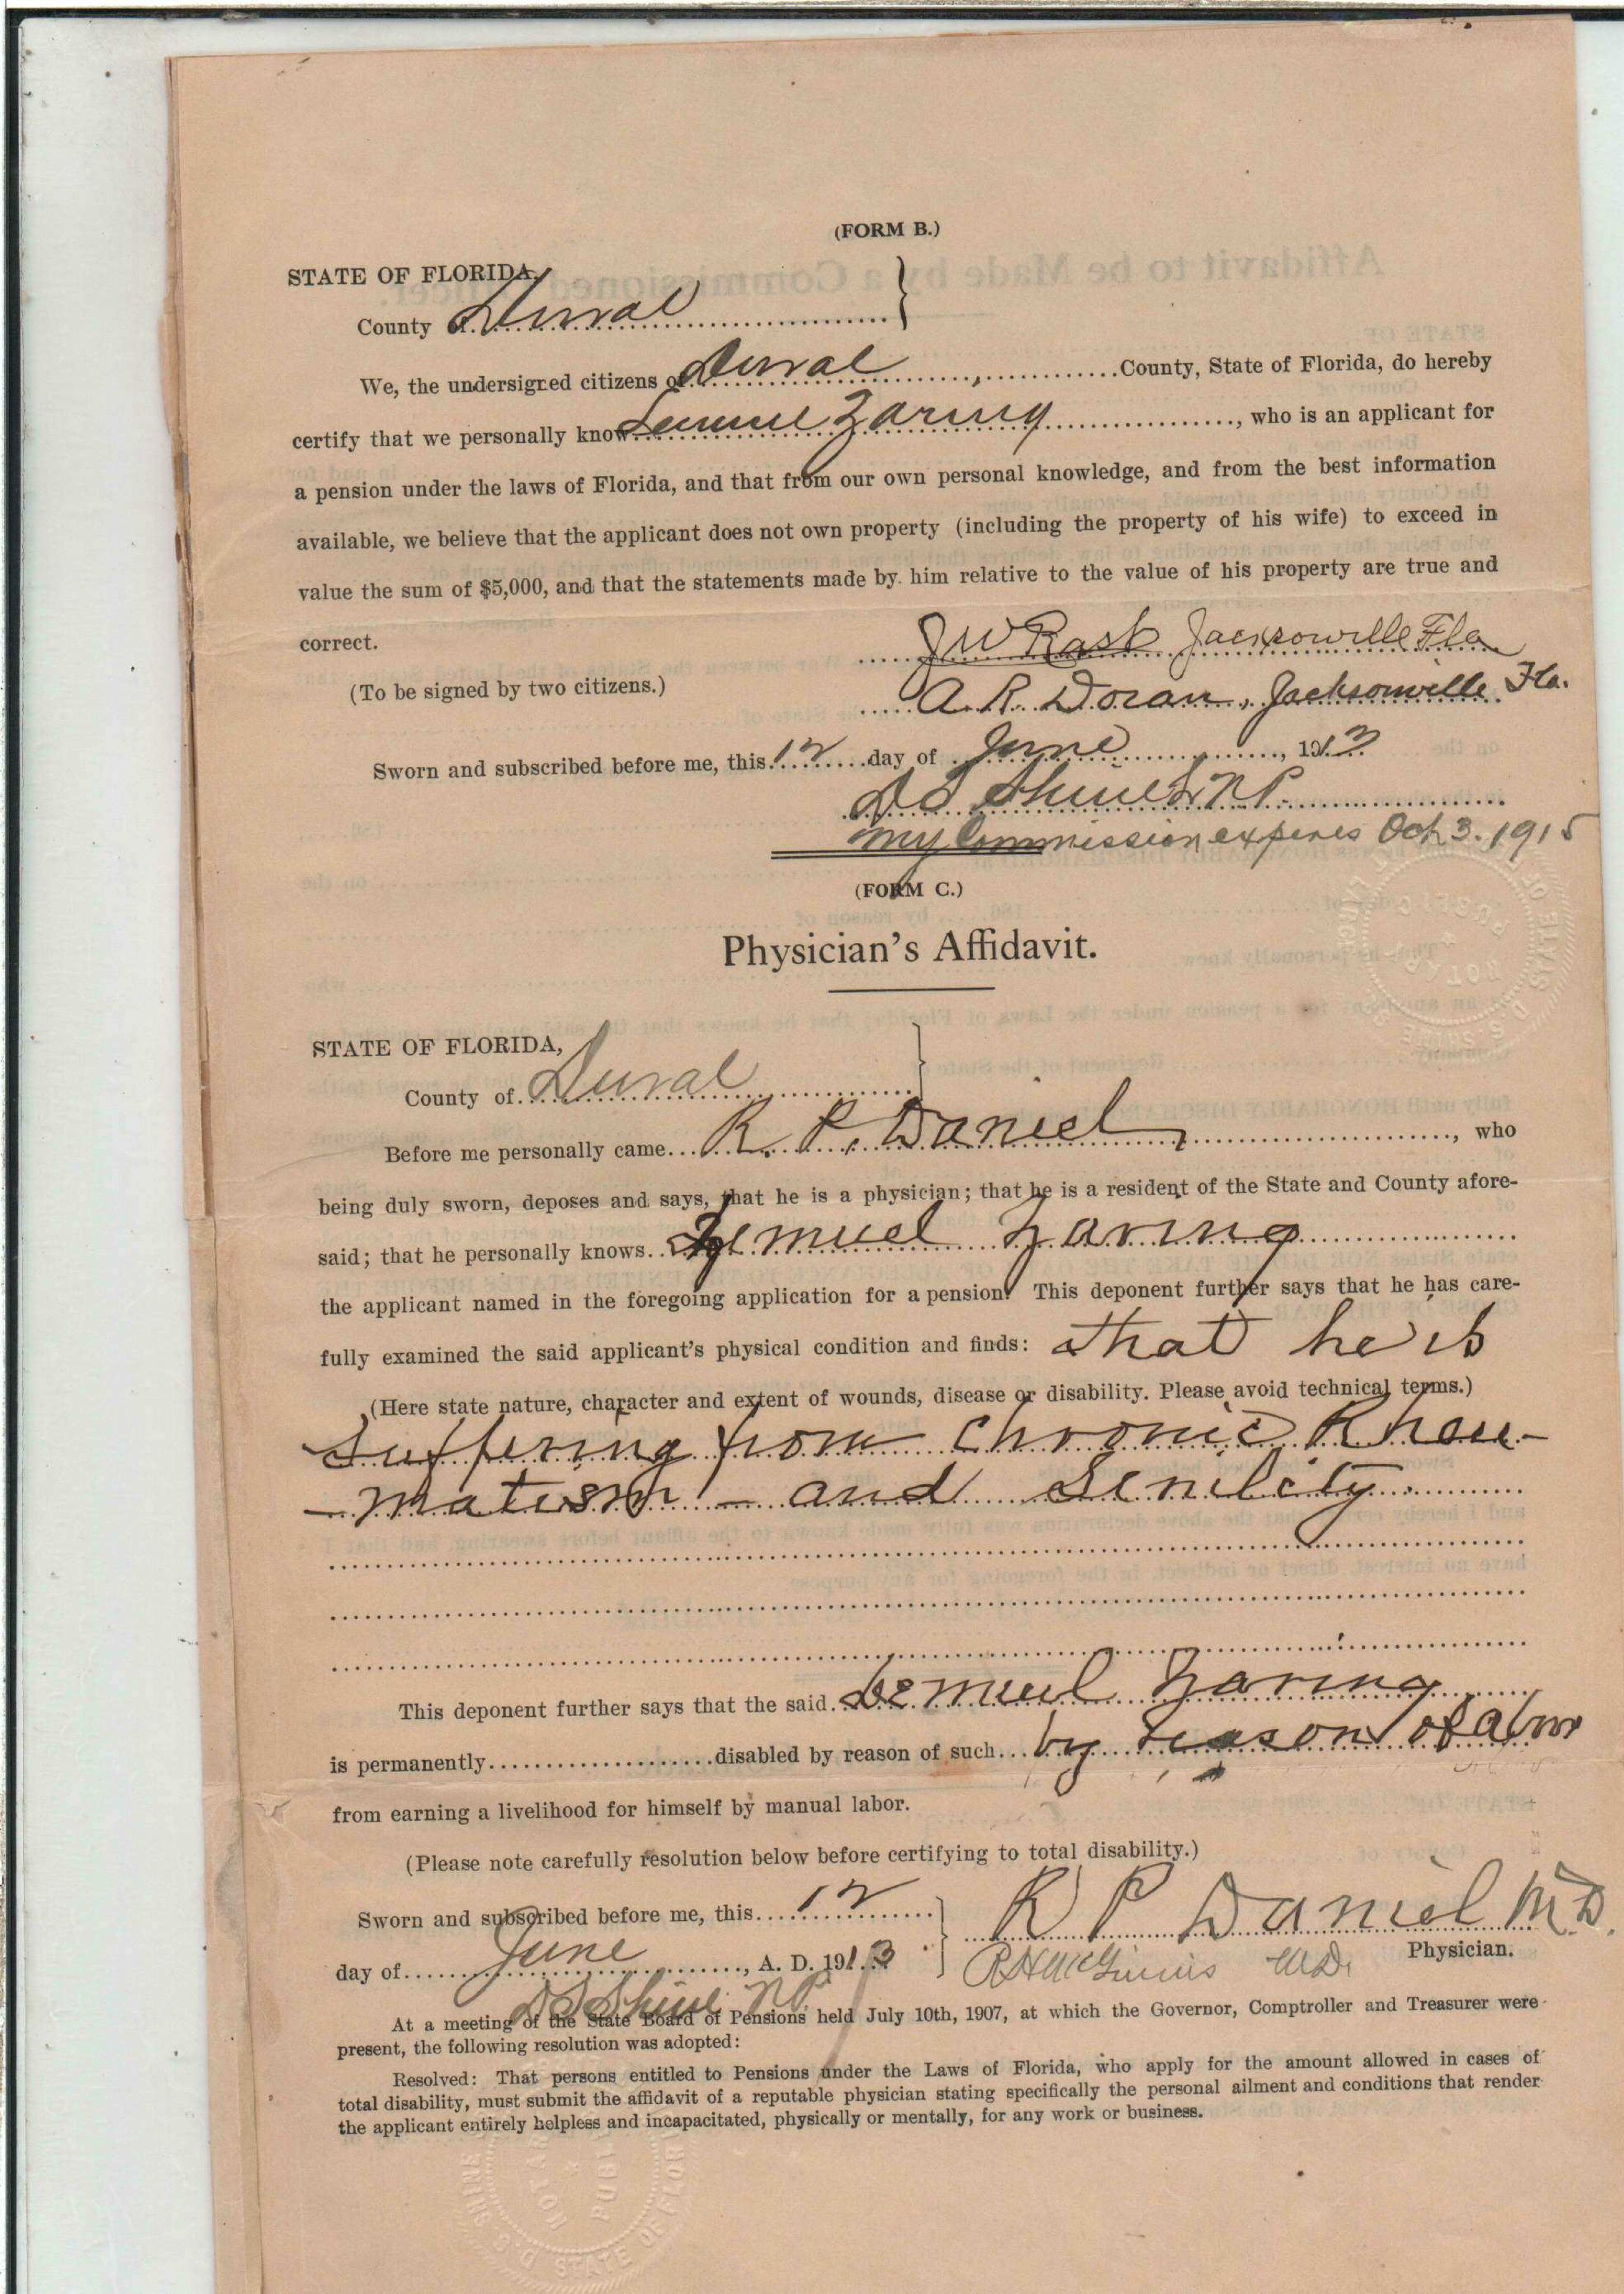 (FORM B.)
STATE OF FLORIDA,
County of Duval
We, the undersigned citizens of Duval County, State of Florida, do hereby
certify that we personally know Lemuel Zaring, who is an applicant for
a pension under the laws of Florida, and that from our own personal knowledge, and from the best information
available, we believe that the applicant does not own property (including the property of his wife) to exceed in
value the sum of $5,000, and that the statements made by him relative to the value of his property are true and
correct.
J W Rast Jacksonville Fla
(To be signed by two citizens.)
A. R. Doran, Jacksonville Fla.
Sworn and subscribed before me, this 12 day of June, 1913
D S Shine NP
My Commission expires Oct 3. 1915
(FORM C.)
Physician's Affidavit.
STATE OF FLORIDA,
County of Duval
Before me personally came R. P. Daniel, who
being duly sworn, deposes and says, that he is a physician; that he is a resident of the State and County afore-
said; that he personally knows Lemuel Zaring
the applicant named in the foregoing application for a pension. This deponent further says that he has care-
fully examined the said applicant's physical condition and finds: that he is
(Here state nature, character and extent of wounds, disease or disability. Please avoid technical terms.)
suffering from Chronic Rheu-
-matism - and Senility.
This deponent further says that the said Lemuel Zaring
is permanently disabled by reason of such by reason of abov
from earning a livelihood for himself by manual labor.
(Please note carefully resolution below before certifying to total disability.)
Sworn and subscribed before me, this 12
R P Daniel M.D.
day of June, A. D. 1913
Physician.
R H McGinnis M.D.
D S Shine N.P.
At a meeting of the State Board of Pensions held July 10th, 1907, at which the Governor, Comptroller and Treasurer were
present, the following resolution was adopted:
Resolved: That persons entitled to Pensions under the Laws of Florida, who apply for the amount allowed in cases of
total disability, must submit the affidavit of a reputable physician stating specifically the personal ailment and conditions that render
the applicant entirely helpless and incapacitated, physically or mentally, for any work or business.